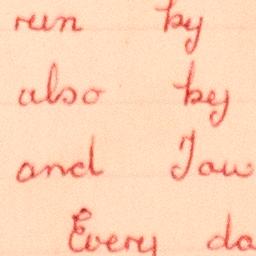 run by
also by
and Tow
Every da